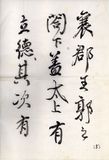 襄郡王郭之
閣下蓋太上有
立德其次有